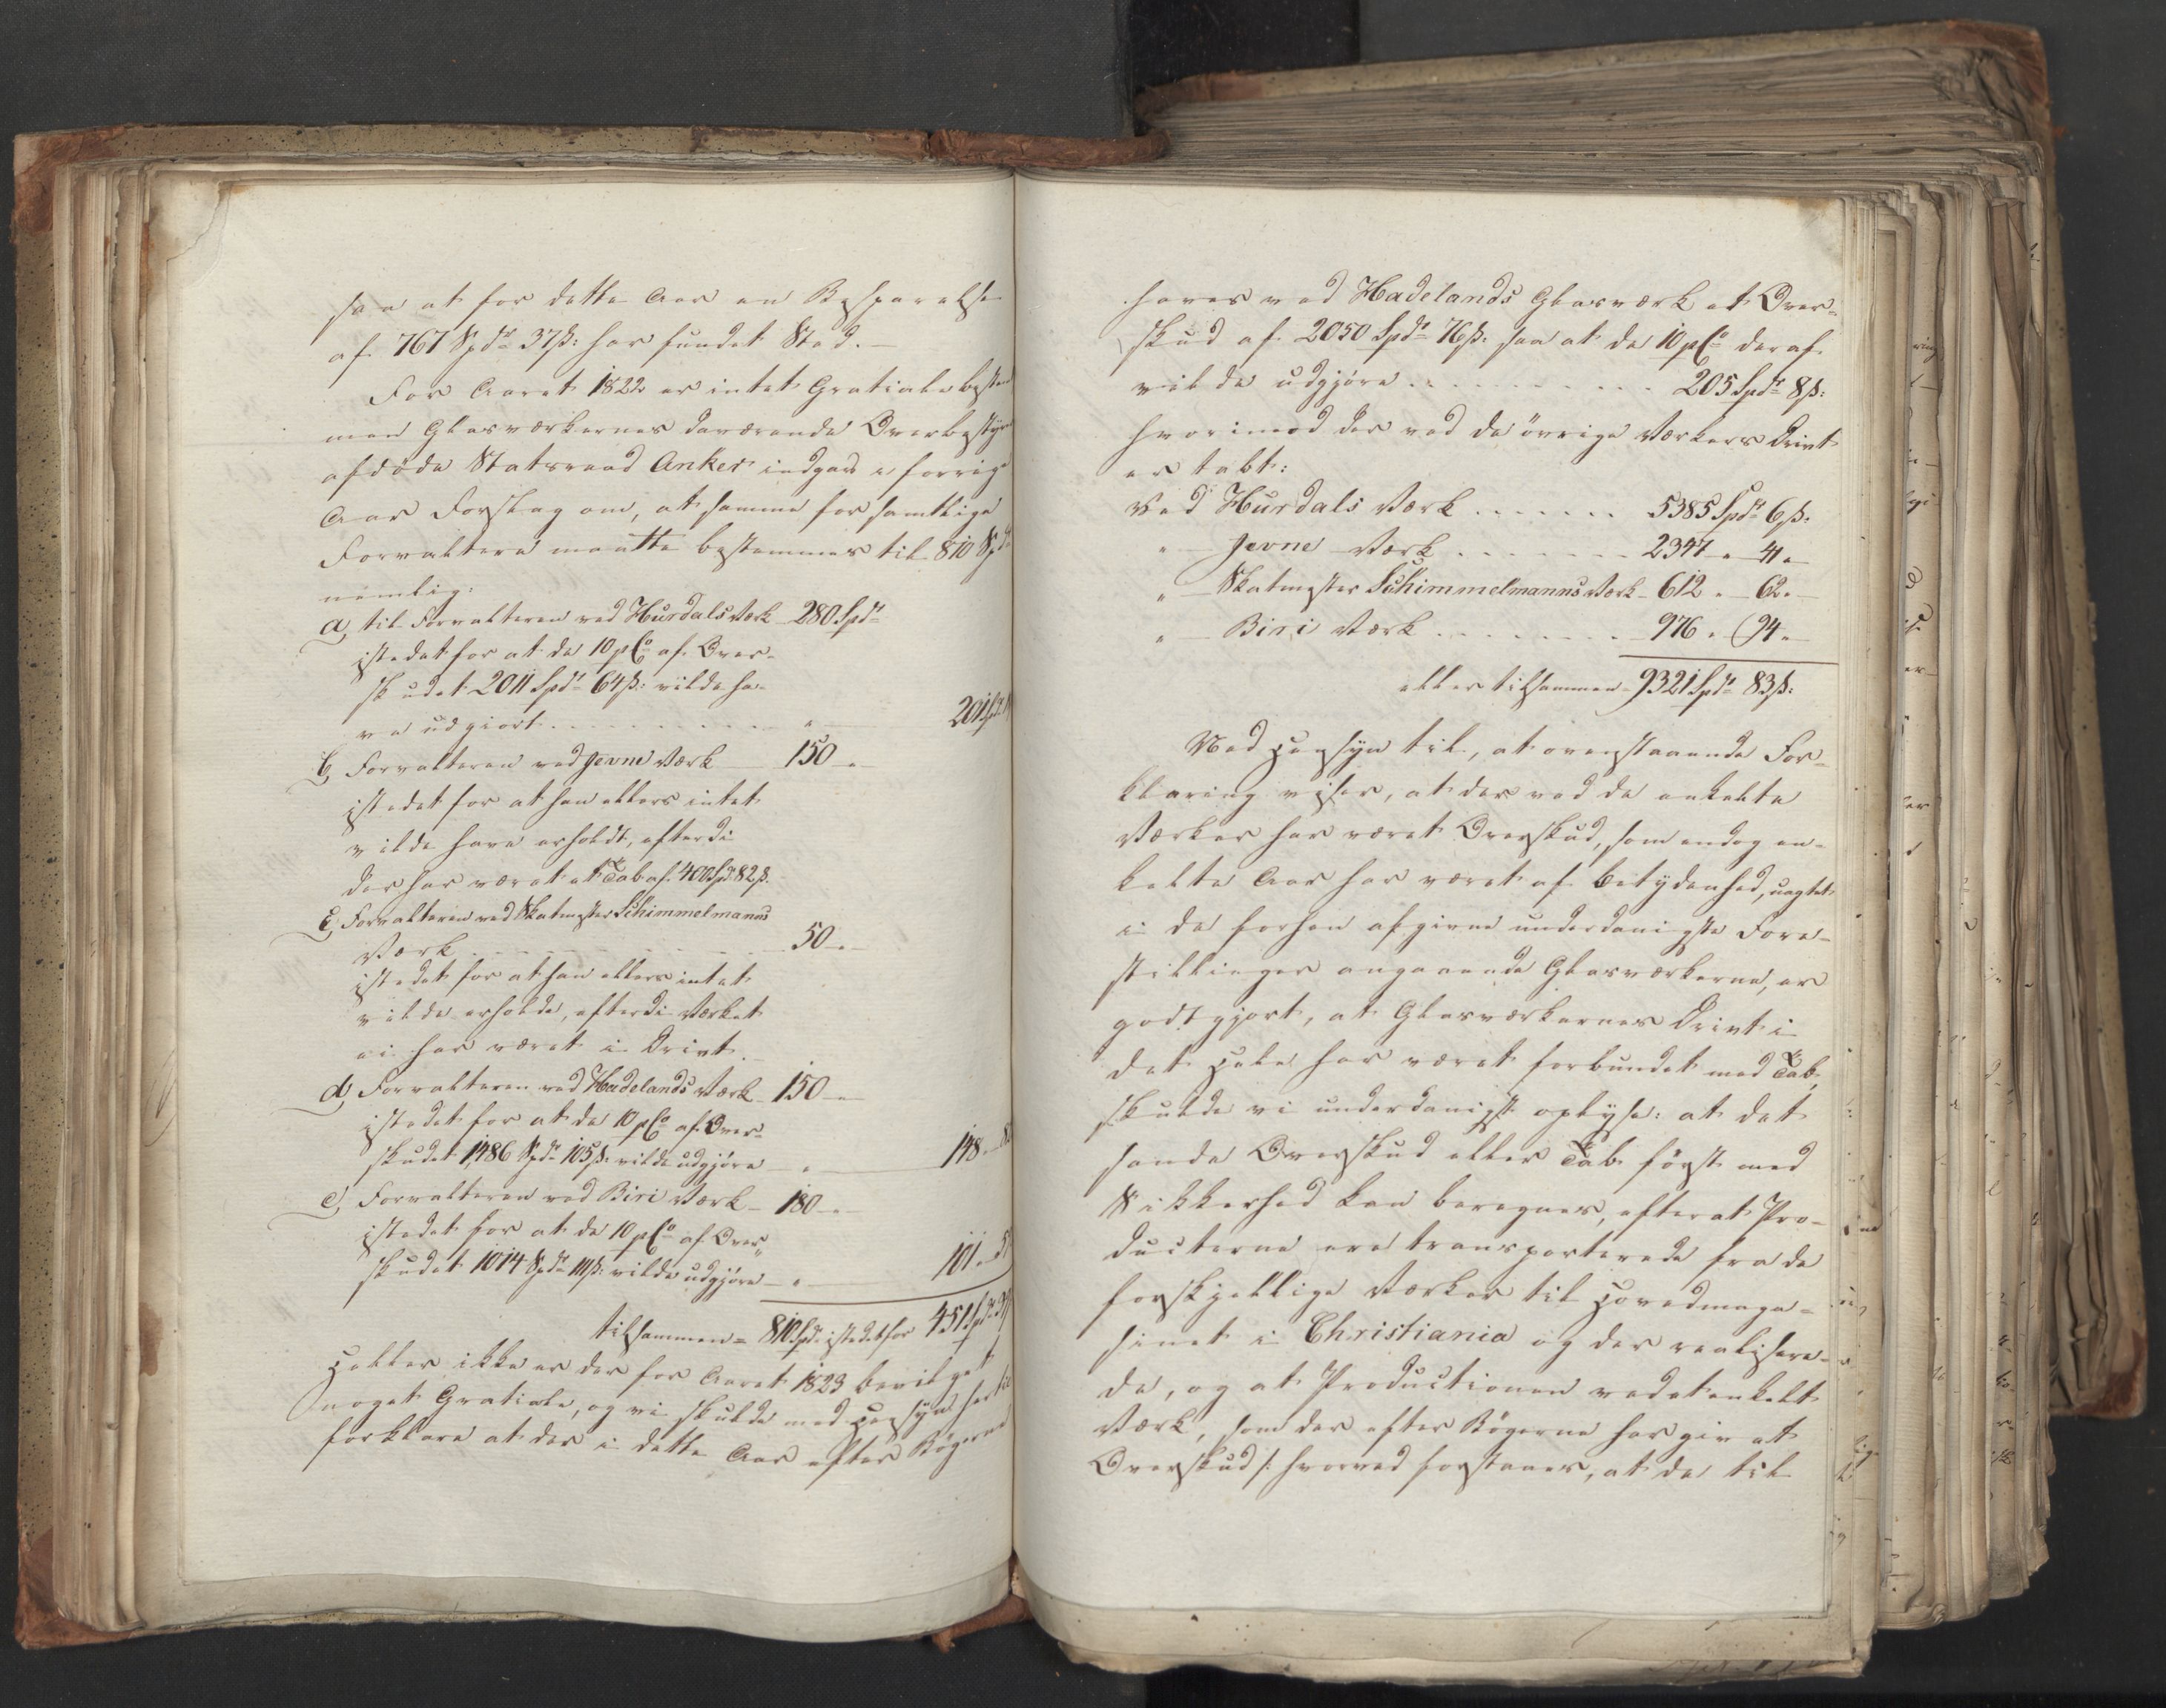 saa at for dette Aar en Besparelse
af 767 Spdr 37 ß: har fundet Sted.—
For Aaret 1822 er intet Gratiale
men Glasværkernes daværende
afdøde Statsraad Anker indgav i forrige
Aar Forslag om, at samme for samtlige
Forvaltere maatte bestemmes til 810 Spdr
nemlig:
a, til Forvalteren ved Hurdals Værk 280 Spdr
istedet for at de 10 pCo af Over-
skudet 2011 Spdr 64 ß: vilde ha-
ve udgiort . . . . . . " 201 Spdr
b, Forvalteren ved Jevne Værk 150 "
istedet for at han ellers intet
vilde have erholdt, efterdi
der har været et Tab af 400 Spdr 82 ß.
c, Forvalteren ved Skatmester Schimmelmanns
Værk . . . . . . 50 "
istedet for at han ellers intet
vilde erholde, efterdi Værket
ei har været i Drivt.
d, Forvalteren ved Hadelands Værk 150 "
istedet for at de 10 pCo af Over-
skudet 1486 Spdr 105 ß. vilde udgjøre " 148 "
e, Forvalteren ved Biri Værk 180 "
istedet for at de 10 pCo af Over-
skudet 1014 Spdr 111 ß: vilde udgjøre " 101 "
tilsammen = 810 Spdr istedetfor 451 Spdr
Heller ikke er der for Aaret 1823 bevilget
noget Gratiale, og vi skulde med Hensyn
forklare at der i dette Aar efter Bøgerne
haves ved Hadelands Glasværk et Over-
skud af 2050 Spdr 76 ß. saa at de 10 pCo deraf
vilde udgjøre . . . . . . 205 Spdr 8 ß:
hvorimod der ved de øvrige Værkers Drivt
er tabt:
Ved Hurdals Værk . . . . . . 5385 Spdr 6 ß.
" Jevne Værk . . . . . . 2347 " 41 "
" Skatmester Schimmelmanns Værk 612 " 62 "
" Biri Værk . . . . . . 976 " 94 "
eller tilsammen 9321 Spdr 83 ß:
Med Hensyn til, at ovenstaaende For-
klaring viser, at der ved de enkelte
Værker har været Overskud, som endog en-
kelte Aar har været af Betydenhed, uagtet
i de forhen afgivne underdanigste Fore-
stillinger angaaende Glasværkerne, er
godtgjort, at Glasværkernes Drivt i
det Hele har været forbundet med Tab,
skulde vi underdanigst oplyse: at det
sande Overskud eller Tab først med
Sikkerhed kan beregnes, efterat Pro-
ducterne ere transporterede fra de
forskjellige Værker til Hovedmaga-
sinet i Christiania og der realisere-
de, og at Productionen ved et enkelt
Værk, som der efter Bøgerne har giv et
Overskud /: hvorved forstaaes, at de til